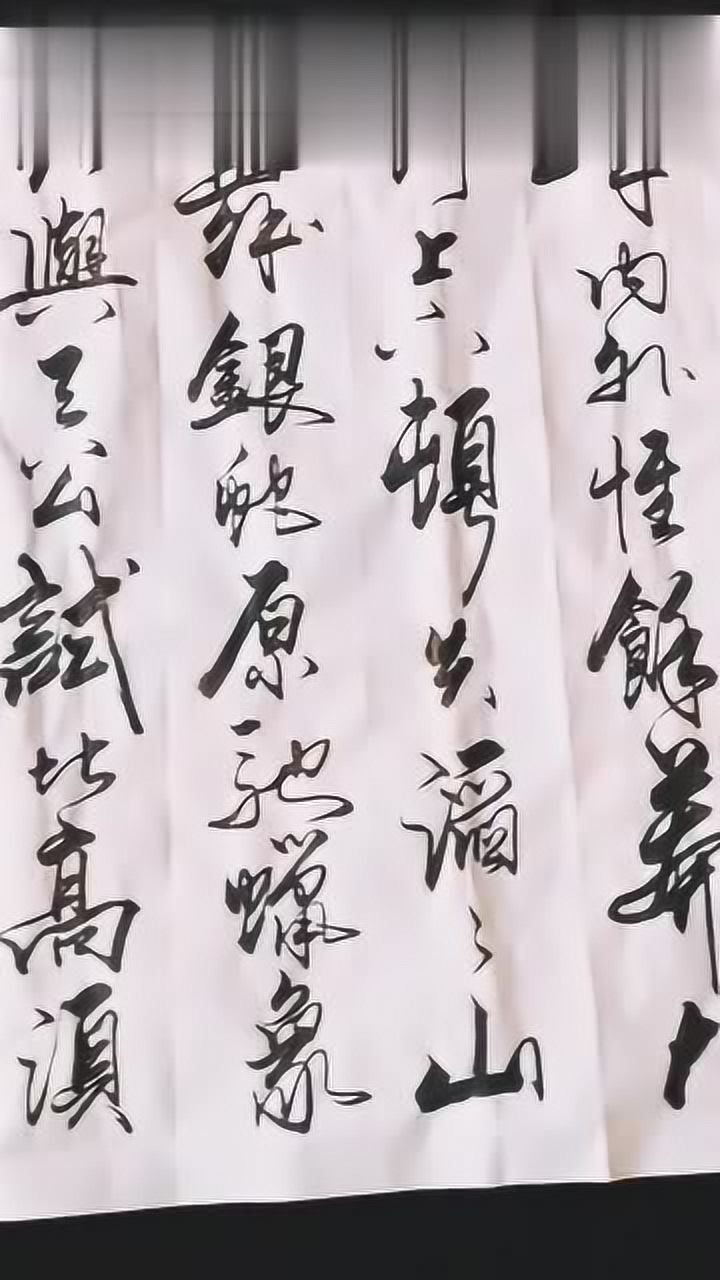 内外惟餘莽
上下頓失滔〻山
舞銀蛇原馳蠟象
與天公試比高須